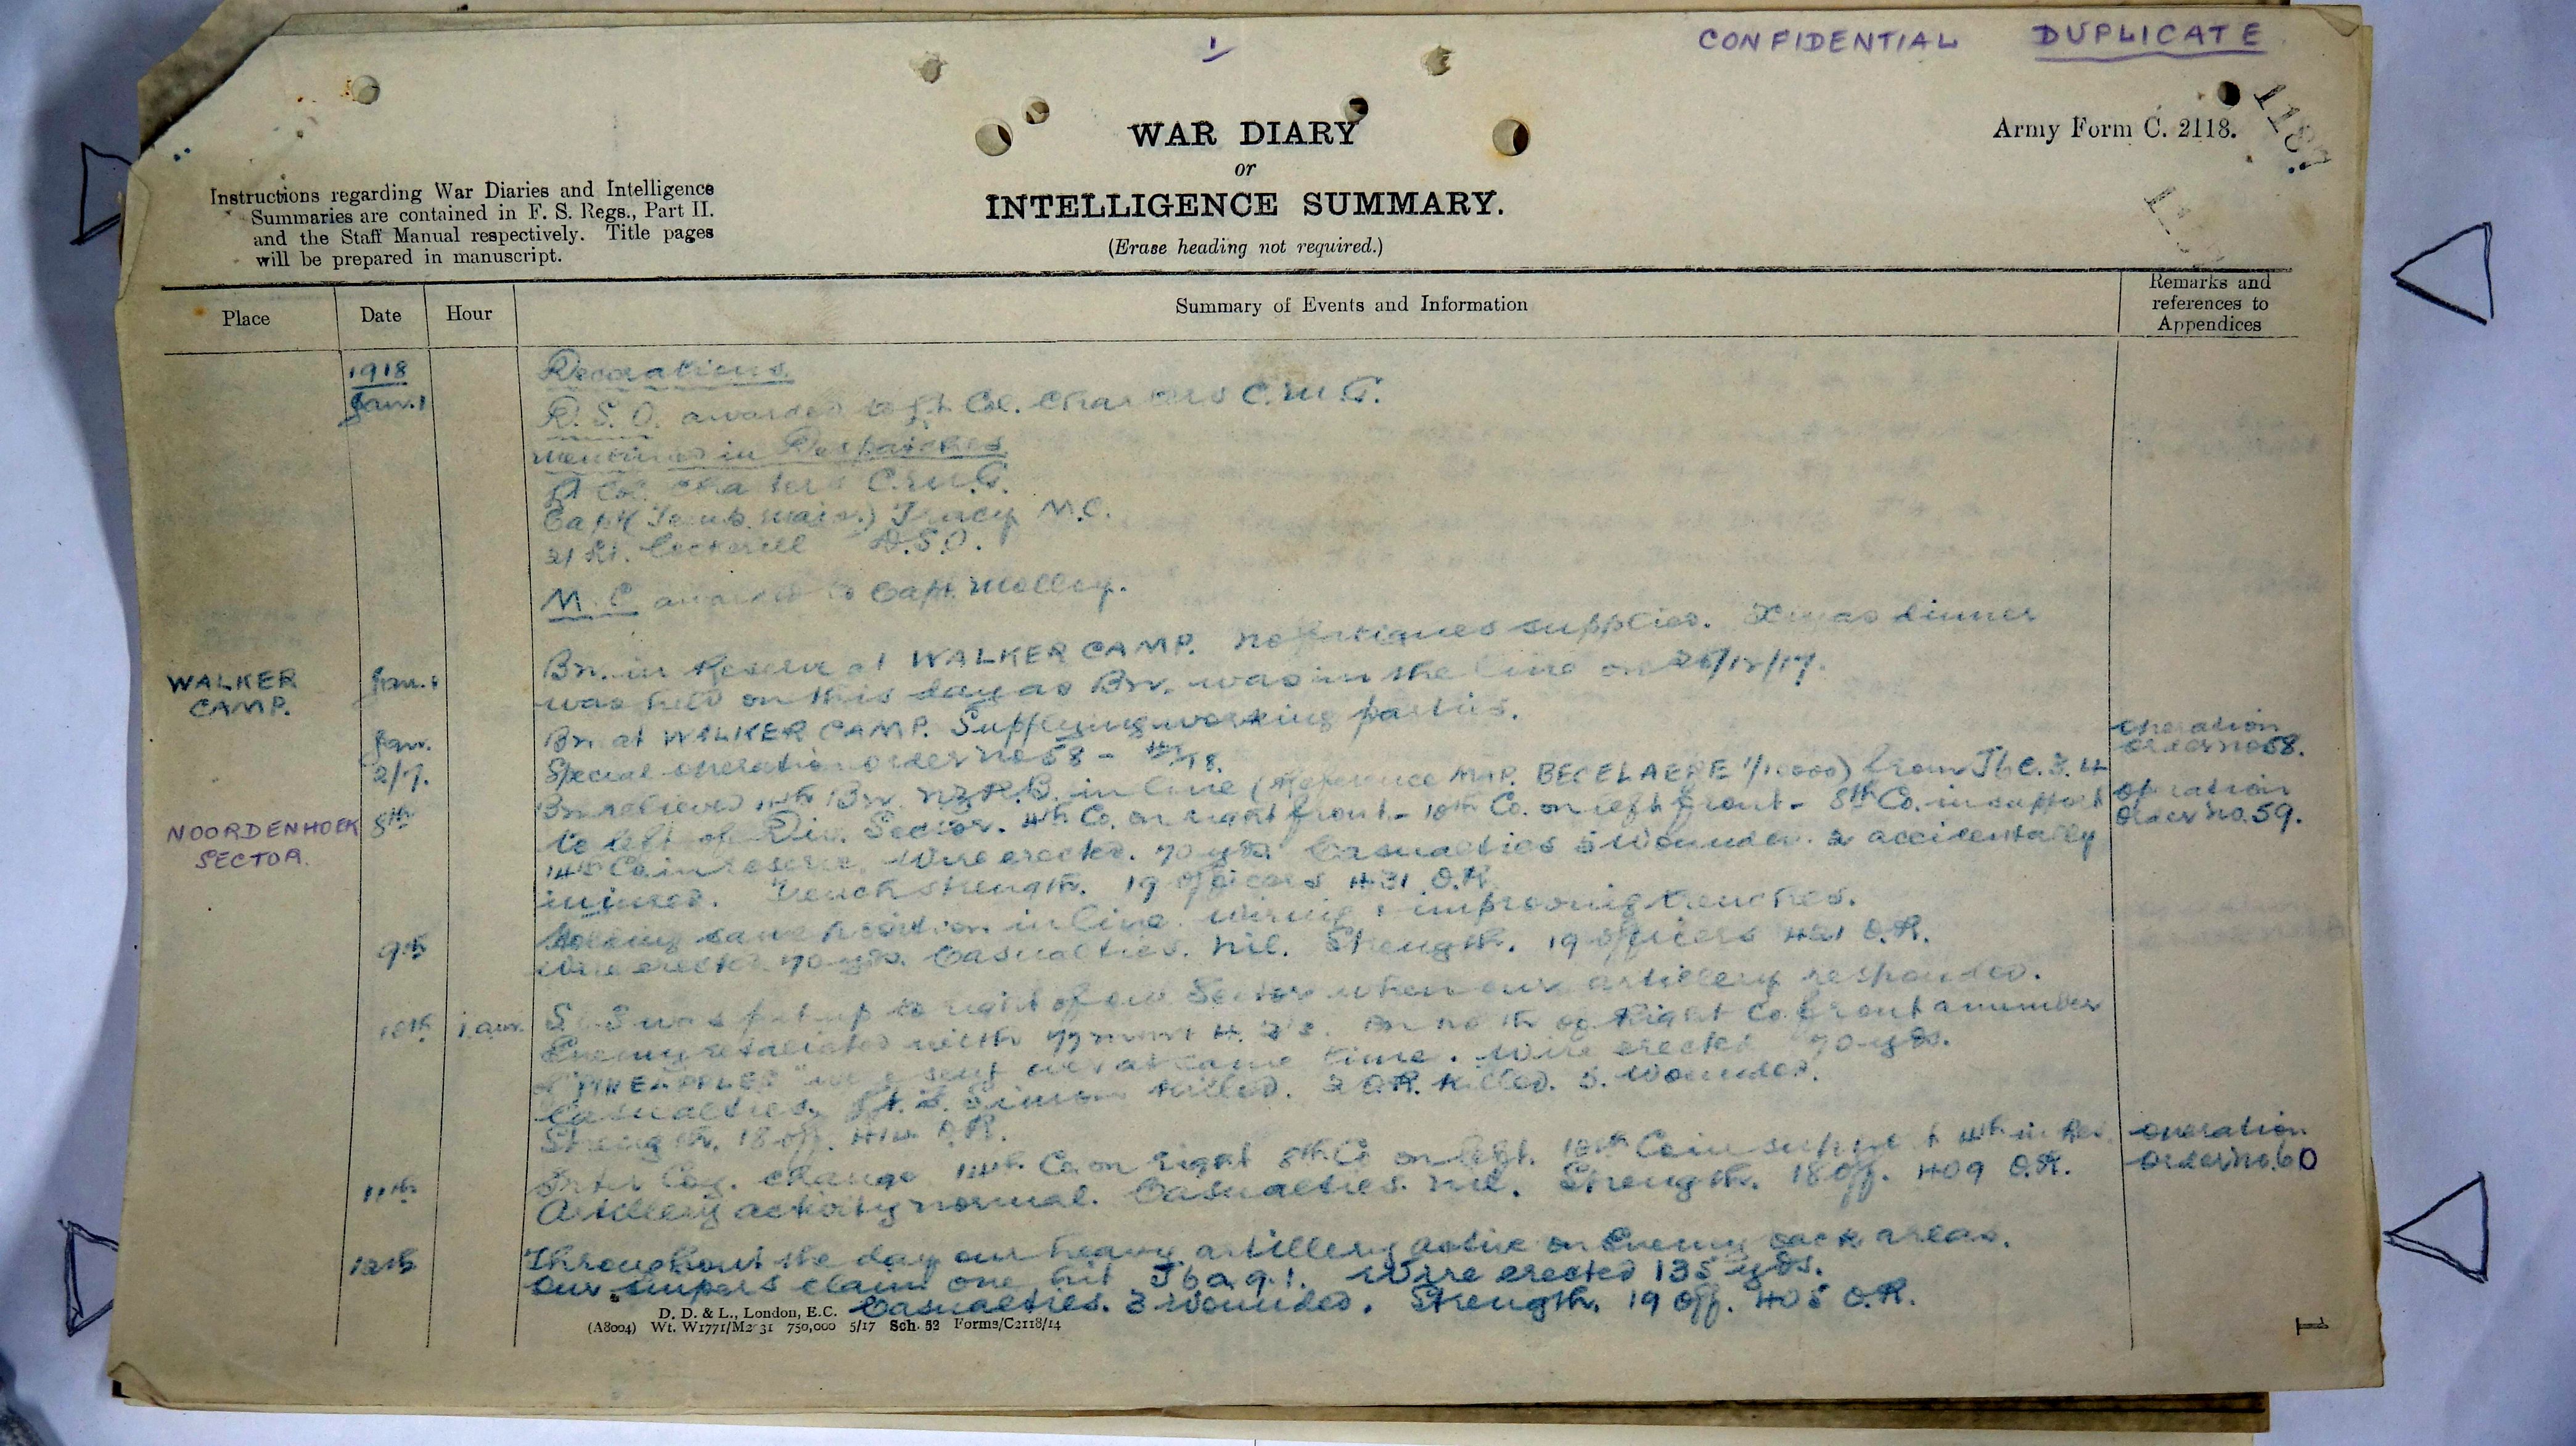 CONFIDENTIAL DUPLICATE
1
WAR DIARY
or
INTELLIGENCE SUMMARY.
(Erase heading not required.)
Army Form C. 2118.
Instructions regarding War Diaries and Intelligence
Summaries are contained in F. S. Regs., Part II.
and the Staff Manual respectively. Title pages
will be prepared in manuscript.
Place Date Hour Summary of Events and Information Remarks and references to Appendices
1918 Decorations.
Jan. 1 D. S. O. awarded to Lt. Col. Charters C.M.G.
Mentioned in Despatches
Lt Col. Charters C.M.G.
Capt (Temp. Major) Tracy M.C.
2/Lt. Cockerill D.S.O.
M.C. awarded to Capt. Molloy.
WALKER CAMP. Jan. 1 Bn. in Reserve at WALKER CAMP. No fatigues supplied. Xmas dinner
was held on this day as Bn. was in the line on 25/12/17.
Jan. 2/7. Bn at WALKER CAMP. Supplying working parties.
Special operation order no 58 - operation order no 58.
NOORDENHOEK SECTOR. 8th Bn relieved 4th Bn. N.Z.R.B. in line (Reference MAP. BECELAERE 1/10000) from J6c.3.4 operation order no. 59.
to left of Div. Sector. 4th Co. on right front - 10th Co. on left front - 8th Co. in support
14th Co in reserve. Wire erected. 70 yds. Casualties 5 Wounded. 2 accidentally
injured. Trench strength. 19 officers 431 O.R.
9th Holding same position in line. Wiring & improving trenches.
Wire erected 70 yds. Casualties. nil. Strength. 19 officers 421 O.R.
10th 1 am. S.O.S was put up to right of our Sector when our artillery responded.
Enemy retaliated with 77mm & 4.2's. on right Co. front a number
of "PINEAPPLES" were sent over at same time. Wire erected 70 yds.
Casualties. Lt. Simon killed. 2 O.R. killed. 5. Wounded.
Strength. 18 off. 414 O.R.
11th Inter Coy. change 14th Co. on right 8th Co on left. 10th Co in support 4th in Res. operation order no. 60
Artillery activity normal. Casualties. nil. Strength. 18 off. 409 O.R.
12th Throughout the day our heavy artillery active on Enemy back areas.
Our snipers claim one hit J6a.9.1. Wire erected 135 yds.
Casualties. 3 wounded. Strength. 19 off. 405 O.R.
D. D. & L., London, E.C.
(A8004) Wt. W1771/M2 31 750,000 5/17 Sch. 52 Forms/C2118/14
1